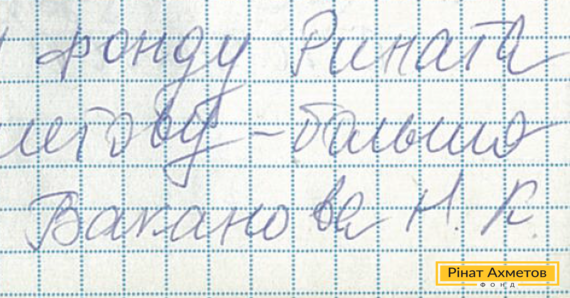 фонду Рината
метову - большо
Ваканова Н. К.
Рінат Ахметов
ФОНД